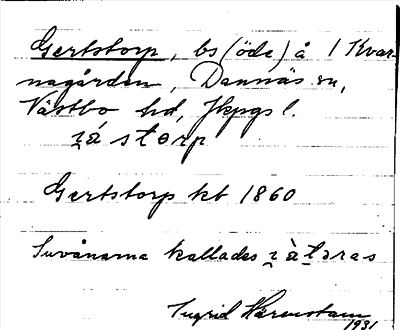 Gertstorp, bs (öde) å 1 Kvar-
nagården, Dannäs sn,
Västbo hd, Jkpgs l.
Gertstorp kb 1860
Invånarna kallades
Ingrid Hermstam
1931